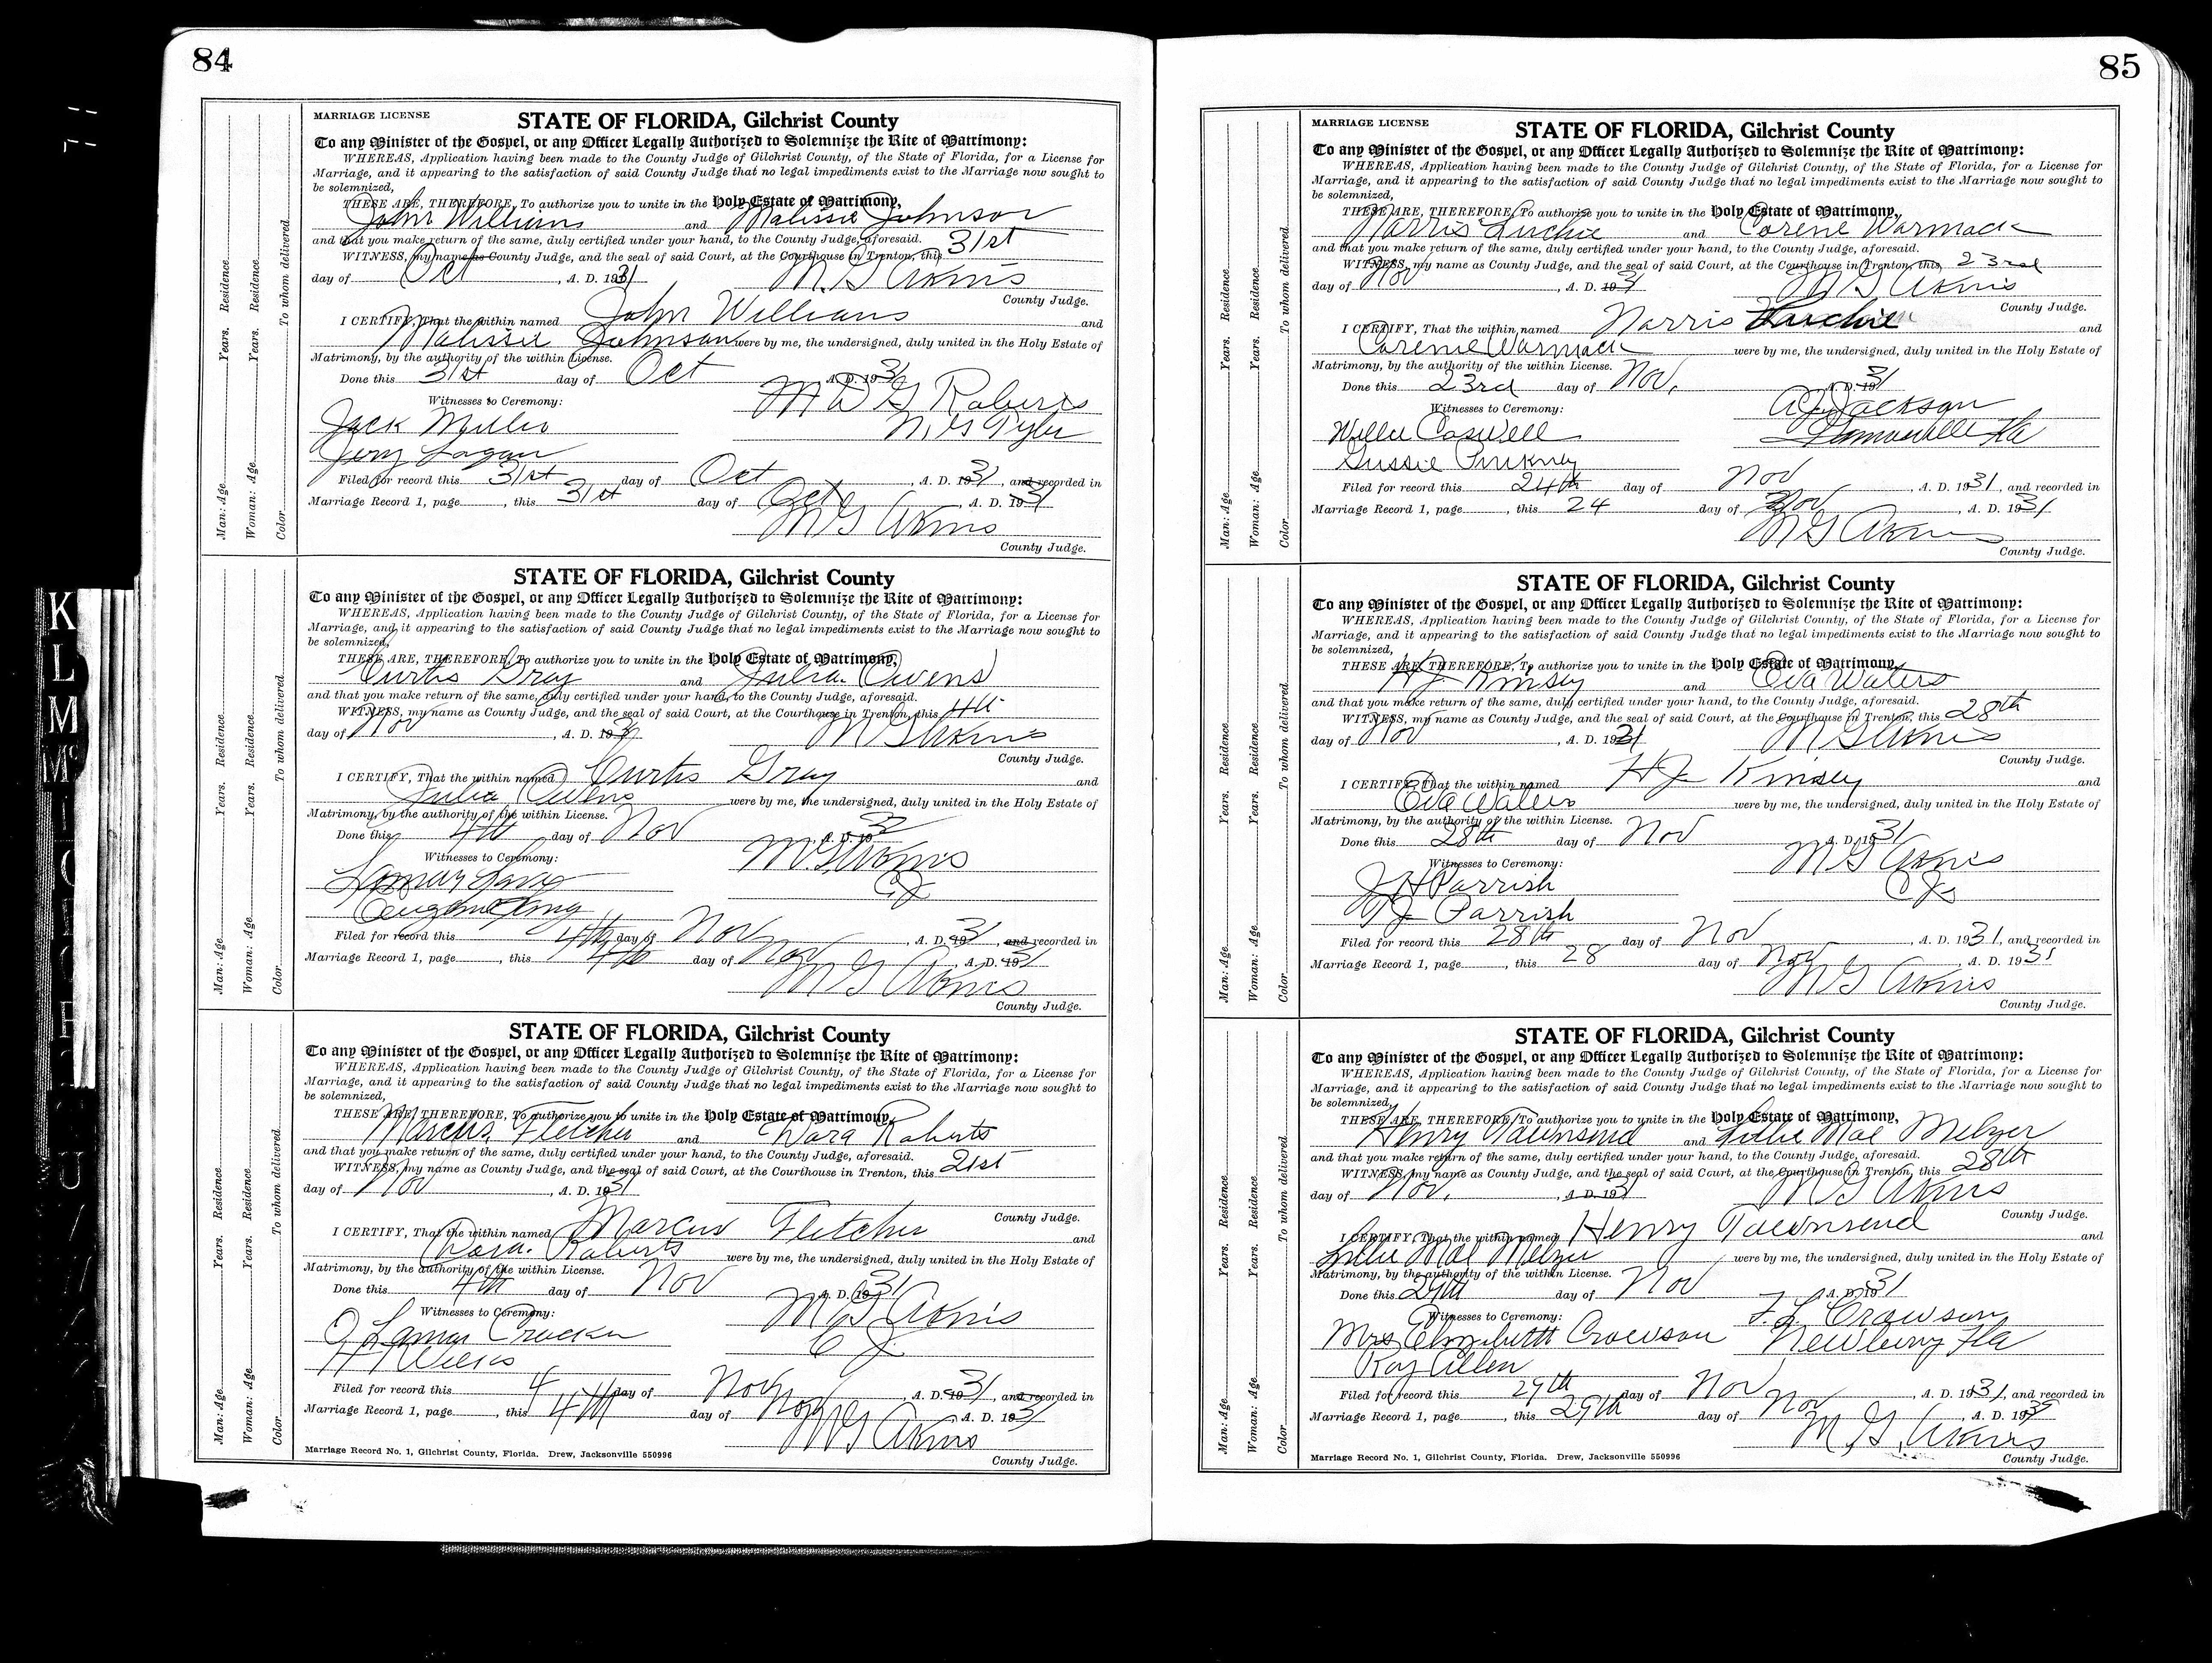 84
MARRIAGE LICENSE
STATE OF FLORIDA, Gilchrist County
To any Minister of the Gospel, or any Officer Legally Authorized to Solemnize the Rite of Matrimony:
WHEREAS, Application having been made to the County Judge of Gilchrist County, of the State of Florida, for a License for
Marriage, and it appearing to the satisfaction of said County Judge that no legal impediments exist to the Marriage now sought to
be solemnized,
THESE ARE, THEREFORE, To authorize you to unite in the Holy Estate of Matrimony,
John Williams and Malissie Johnson
and that you make return of the same, duly certified under your hand, to the County Judge, aforesaid.
WITNESS, my name as County Judge, and the seal of said Court, at the Courthouse in Trenton, this 31st
day of Oct, A. D. 1931 M. G Akins
County Judge.
I CERTIFY, That the within named John Williams and
Malissie Johnson were by me, the undersigned, duly united in the Holy Estate of
Matrimony, by the authority of the within License.
Done this 31st day of Oct A. D. 1931
Witnesses to Ceremony: M W G Roberts
Jack Miller N. G Tyler
Jery Logan
Filed for record this 31st day of Oct, A. D. 1931, and recorded in
Marriage Record 1, page, this 31st day of Oct, A. D. 1931
M G Akins
County Judge.
Man: Age Years. Residence
Woman: Age Years. Residence
Color To whom delivered
STATE OF FLORIDA, Gilchrist County
To any Minister of the Gospel, or any Officer Legally Authorized to Solemnize the Rite of Matrimony:
WHEREAS, Application having been made to the County Judge of Gilchrist County, of the State of Florida, for a License for
Marriage, and it appearing to the satisfaction of said County Judge that no legal impediments exist to the Marriage now sought to
be solemnized,
THESE ARE, THEREFORE, To authorize you to unite in the Holy Estate of Matrimony,
Curtis Gray and Julia Owens
and that you make return of the same, duly certified under your hand, to the County Judge, aforesaid.
WITNESS, my name as County Judge, and the seal of said Court, at the Courthouse in Trenton, this 4th
day of Nov, A. D. 193 M G Akins
County Judge.
I CERTIFY, That the within named Curtis Gray and
Julia Owens were by me, the undersigned, duly united in the Holy Estate of
Matrimony, by the authority of the within License.
Done this 4th day of Nov A. D. 193
Witnesses to Ceremony: M. G Akins
Lamar C J
Eugene King
Filed for record this 4th day of Nov, A. D. 1931, and recorded in
Marriage Record 1, page, this 4th day of Nov, A. D. 1931
M G Akins
County Judge.
Man: Age Years. Residence
Woman: Age Years. Residence
Color To whom delivered
STATE OF FLORIDA, Gilchrist County
To any Minister of the Gospel, or any Officer Legally Authorized to Solemnize the Rite of Matrimony:
WHEREAS, Application having been made to the County Judge of Gilchrist County, of the State of Florida, for a License for
Marriage, and it appearing to the satisfaction of said County Judge that no legal impediments exist to the Marriage now sought to
be solemnized,
THESE ARE, THEREFORE, To authorize you to unite in the Holy Estate of Matrimony,
Marcus Fletcher and Dora Roberts
and that you make return of the same, duly certified under your hand, to the County Judge, aforesaid.
WITNESS, my name as County Judge, and the seal of said Court, at the Courthouse in Trenton, this 21st
day of Nov, A. D. 1931
County Judge.
I CERTIFY, That the within named Marcus Fletcher and
Dora Roberts were by me, the undersigned, duly united in the Holy Estate of
Matrimony, by the authority of the within License.
Done this 4th day of Nov A. D. 1931
Witnesses to Ceremony: M G Akins
J Lamar Crocker C J
Weeks
Filed for record this 4 4th day of Nov, A. D. 1931, and recorded in
Marriage Record 1, page, this 4th day of Nov, A. D. 1931
M G Akins
Marriage Record No. 1, Gilchrist County, Florida. Drew, Jacksonville 550996
County Judge.
Man: Age Years. Residence
Woman: Age Years. Residence
Color To whom delivered
85
MARRIAGE LICENSE
STATE OF FLORIDA, Gilchrist County
To any Minister of the Gospel, or any Officer Legally Authorized to Solemnize the Rite of Matrimony:
WHEREAS, Application having been made to the County Judge of Gilchrist County, of the State of Florida, for a License for
Marriage, and it appearing to the satisfaction of said County Judge that no legal impediments exist to the Marriage now sought to
be solemnized,
THESE ARE, THEREFORE, To authorize you to unite in the Holy Estate of Matrimony,
Norris and Corene Warmack
and that you make return of the same, duly certified under your hand, to the County Judge, aforesaid.
WITNESS, my name as County Judge, and the seal of said Court, at the Courthouse in Trenton, this 23rd
day of Nov, A. D. 1931 M G Akins
County Judge.
I CERTIFY, That the within named Norris and
Corenie Warmack were by me, the undersigned, duly united in the Holy Estate of
Matrimony, by the authority of the within License.
Done this 23rd day of Nov. A. D. 1931
Witnesses to Ceremony: A J Jackson
Willie Caswell Fla
Gussie Pinkney
Filed for record this 24th day of Nov, A. D. 1931, and recorded in
Marriage Record 1, page, this 24 day of Nov, A. D. 1931
M G Akins
County Judge.
Man: Age Years. Residence
Woman: Age Years. Residence
Color To whom delivered
STATE OF FLORIDA, Gilchrist County
To any Minister of the Gospel, or any Officer Legally Authorized to Solemnize the Rite of Matrimony:
WHEREAS, Application having been made to the County Judge of Gilchrist County, of the State of Florida, for a License for
Marriage, and it appearing to the satisfaction of said County Judge that no legal impediments exist to the Marriage now sought to
be solemnized,
THESE ARE, THEREFORE, To authorize you to unite in the Holy Estate of Matrimony,
H J Kinsey and Eva Waters
and that you make return of the same, duly certified under your hand, to the County Judge, aforesaid.
WITNESS, my name as County Judge, and the seal of said Court, at the Courthouse in Trenton, this 28th
day of Nov, A. D. 1931 M G Akins
County Judge.
I CERTIFY, That the within named H J Kinsey and
Eva Waters were by me, the undersigned, duly united in the Holy Estate of
Matrimony, by the authority of the within License.
Done this 28th day of Nov A. D. 1931
Witnesses to Ceremony: M G Akins
J H Parrish C J
T J Parrish
Filed for record this 28th day of Nov, A. D. 1931, and recorded in
Marriage Record 1, page, this 28 day of Nov, A. D. 1931
M G Akins
County Judge.
Man: Age Years. Residence
Woman: Age Years. Residence
Color To whom delivered
STATE OF FLORIDA, Gilchrist County
To any Minister of the Gospel, or any Officer Legally Authorized to Solemnize the Rite of Matrimony:
WHEREAS, Application having been made to the County Judge of Gilchrist County, of the State of Florida, for a License for
Marriage, and it appearing to the satisfaction of said County Judge that no legal impediments exist to the Marriage now sought to
be solemnized,
THESE ARE, THEREFORE, To authorize you to unite in the Holy Estate of Matrimony,
Henry Townsend and Lillie Mae Melzer
and that you make return of the same, duly certified under your hand, to the County Judge, aforesaid.
WITNESS, my name as County Judge, and the seal of said Court, at the Courthouse in Trenton, this 28th
day of Nov., A. D. 1931 M G Akins
County Judge.
I CERTIFY, That the within named Henry Townsend and
Lillie Mae Melzer were by me, the undersigned, duly united in the Holy Estate of
Matrimony, by the authority of the within License.
Done this 29th day of Nov A. D. 1931
Witnesses to Ceremony: F. L. Crowson
Mrs Elizabeth Crowson Newberry Fla
Roy Allen
Filed for record this 29th day of Nov, A. D. 1931, and recorded in
Marriage Record 1, page, this 29th day of Nov, A. D. 193
M. G. Akins
Marriage Record No. 1, Gilchrist County, Florida. Drew, Jacksonville 550996
County Judge.
Man: Age Years. Residence
Woman: Age Years. Residence
Color To whom delivered
K
L
M
Mc